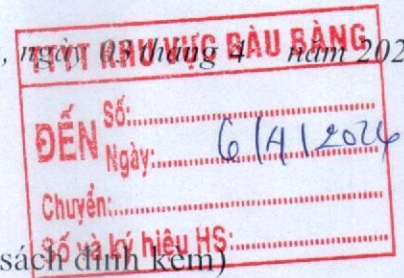 , ngày 03 tháng 4 năm 202
TTYT KHU VỰC BÀU BÀNG
ĐẾN
Số:
Ngày: 6/4/2026
Chuyển:
Số và ký hiệu HS:
sách đính kèm)